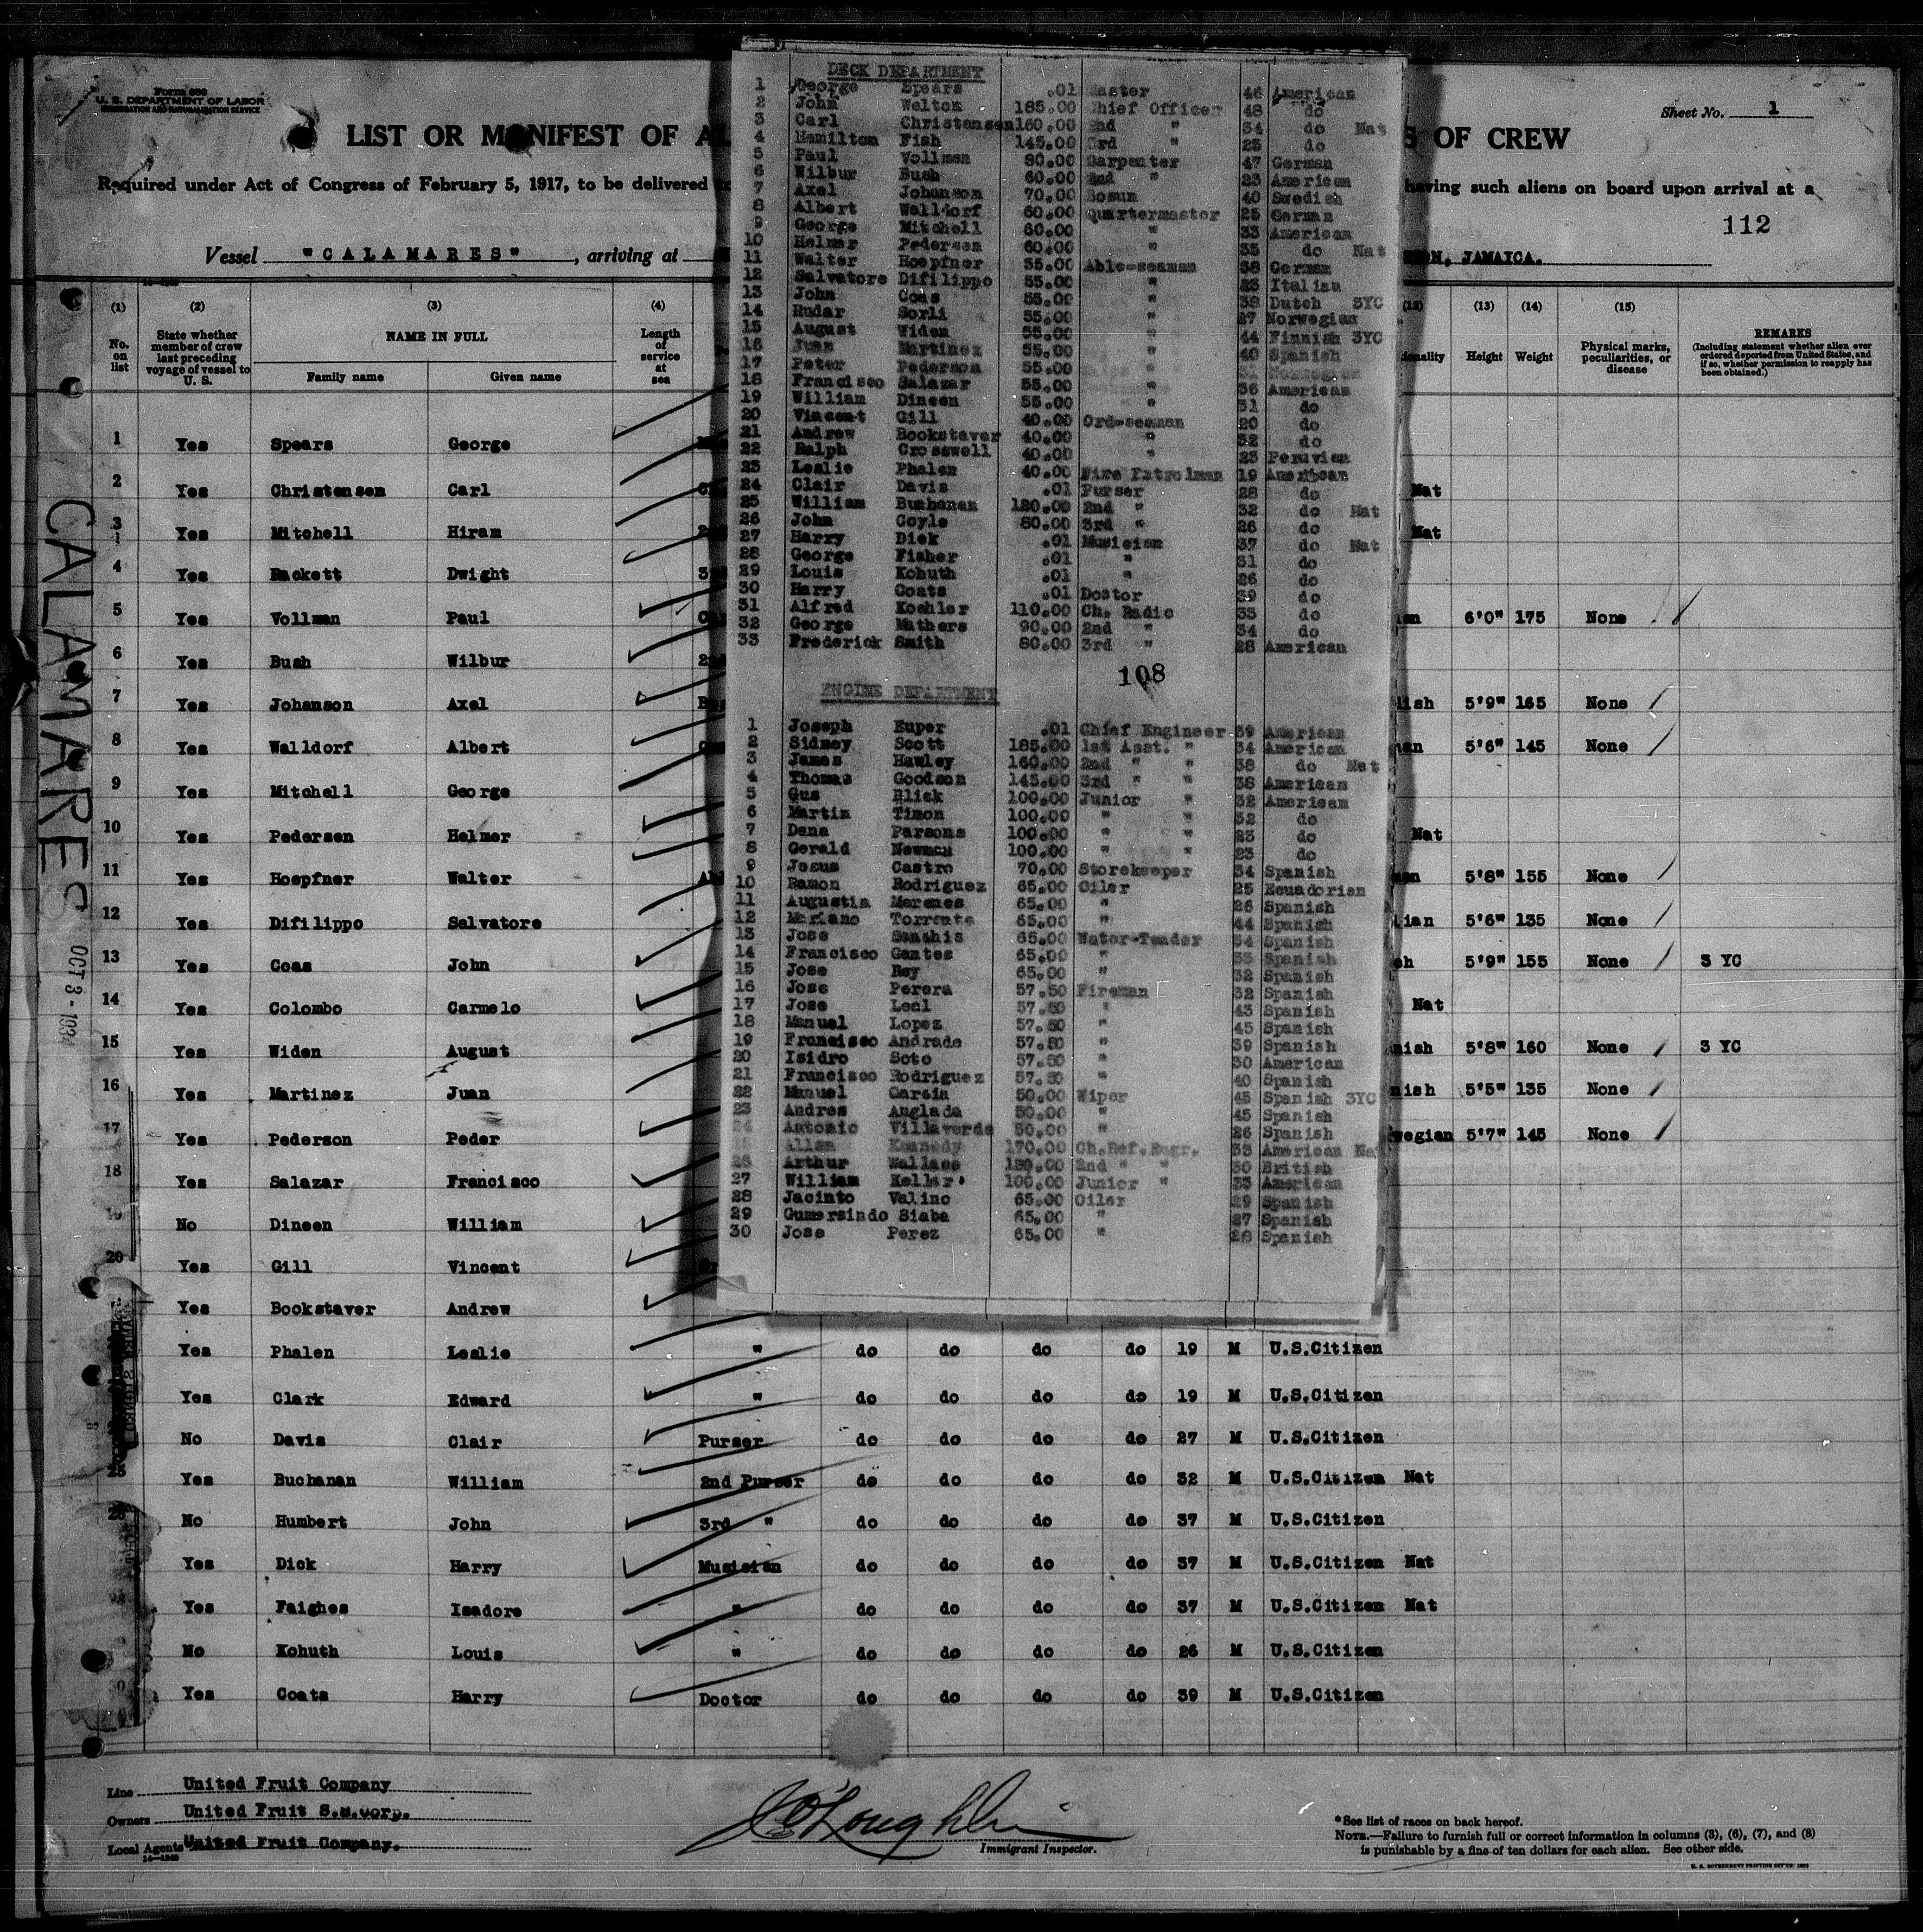 Form 680
U. S. DEPARTMENT OF LABOR
IMMIGRATION AND NATURALIZATION SERVICE
Sheet No. 1
LIST OR MANIFEST OF AL
S OF CREW
Required under Act of Congress of February 5, 1917, to be delivered
having such aliens on board upon arrival at a
112
Vessel "CALAMARES", arriving at
JAMAICA.
(1) (2) (3) (4)
No. on list
State whether member of crew last preceding voyage of vessel to U. S.
NAME IN FULL
Family name Given name
Length of service at sea
(12) (13) (14) (15)
Height Weight
Physical marks, peculiarities, or disease
REMARKS
(Including statement whether alien ever ordered deported from United States, and if so, whether permission to reapply has been obtained.)
CALAMARES
OCT 3 -
1 Yes Spears George
2 Yes Christensen Carl Nat
3 Yes Mitchell Hiram Nat
4 Yes Hackett Dwight
5 Yes Vollman Paul 6'0" 175 None
6 Yes Bush Wilbur
7 Yes Johanson Axel ish 5'9" 165 None
8 Yes Walldorf Albert 5'6" 145 None
9 Yes Mitchell George
10 Yes Pedersen Helmer Nat
11 Yes Hoepfner Walter 5'8" 155 None
12 Yes Difilippo Salvatore ian 5'6" 135 None
13 Yes Coas John 5'9" 155 None 3 YC
14 Yes Colombo Carmelo Nat
15 Yes Widen August nish 5'8" 160 None 3 YC
16 Yes Martinez Juan nish 5'5" 135 None
17 Yes Pederson Peder wegian 5'7" 145 None
18 Yes Salazar Francisco
No Dineen William
20 Yes Gill Vincent
Yes Bookstaver Andrew
Yes Phalen Leslie " do do do do 19 M U.S.Citizen
Yes Clark Edward " do do do do 19 M U.S.Citizen
No Davis Clair Purser do do do do 27 M U.S.Citizen
25 Yes Buchanan William 2nd Purser do do do do 32 M U.S.Citizen Nat
No Humbert John 3rd " do do do do 37 M U.S.Citizen
Yes Dick Harry Musician do do do do 37 M U.S.Citizen Nat
Yes Faighes Isadore " do do do do 37 M U.S.Citizen Nat
No Kohuth Louis " do do do do 26 M U.S.Citizen
Yes Coats Harry Doctor do do do do 39 M U.S.Citizen
DECK DEPARTMENT
1 George Spears .01 Master 46 American
2 John Welton 185.00 Chief Officer 48 do
3 Carl Christensen 160.00 2nd " 34 do Nat
4 Hamilton Fish 145.00 3rd " 25 do
5 Paul Vollman 80.00 Carpenter 47 German
6 Wilbur Bush 60.00 2nd " 23 American
7 Axel Johanson 70.00 Bosun 40 Swedish
8 Albert Walldorf 60.00 Quartermaster 25 German
9 George Mitchell 60.00 " 33 American
10 Helmar Pedersen 60.00 " 35 do Nat
11 Walter Hoepfner 55.00 Able-seaman 38 German
12 Salvatore Difilippo 55.00 " 23 Italian
13 John Coas 55.00 " 38 Dutch 3YC
14 Rudar Sorli 55.00 " 27 Norwegian
15 August Widen 55.00 " 44 Finnish 3YC
16 Juan Martinez 55.00 " 40 Spanish
17 Peter Pederson 55.00 " Norwegian
18 Francisco Salazar 55.00 " 36 American
19 William Dineen 55.00 " 31 do
20 Vincent Gill 40.00 Ord-seaman 20 do
21 Andrew Bookstaver 40.00 " 32 do
22 Ralph Crosswell 40.00 " 23 Peruvian
23 Leslie Phalen 40.00 Fire Patrolman 19 American
24 Clair Davis .01 Purser 28 do
25 William Buchanan 120.00 2nd " 32 do Nat
26 John Coyle 80.00 3rd " 26 do
27 Harry Dick .01 Musician 37 do Nat
28 George Fisher .01 " 31 do
29 Louis Kohuth .01 " 26 do
30 Harry Coats .01 Doctor 39 do
31 Alfred Koehler 110.00 Ch. Radio 33 do
32 George Mathers 90.00 2nd " 34 do
33 Frederick Smith 80.00 3rd " 28 American
108
ENGINE DEPARTMENT
1 Joseph Euper .01 Chief Engineer 39 American
2 Sidney Scott 185.00 1st Asst. " 34 American
3 James Hawley 160.00 2nd " " 38 do Nat
4 Thomas Goodson 145.00 3rd " " 38 American
5 Gus Blick 100.00 Junior " 32 American
6 Martin Timon 100.00 " " 32 do
7 Dana Parsons 100.00 " " 23 do
8 Gerald Newman 100.00 " " 23 do
9 Jesus Castro 70.00 Storekeeper 34 Spanish
10 Ramon Rodriguez 65.00 Oiler 25 Ecuadorian
11 Augustin Merenes 65.00 " 26 Spanish
12 Mariano Torrente 65.00 " 44 Spanish
13 Jose Senthis 65.00 Water-Tender 54 Spanish
14 Francisco Gantes 65.00 " 33 Spanish
15 Jose Rey 65.00 " 32 Spanish
16 Jose Perera 57.50 Fireman 32 Spanish
17 Jose Leal 57.50 " 43 Spanish
18 Manuel Lopez 57.50 " 45 Spanish
19 Francisco Andrade 57.50 " 39 Spanish
20 Isidro Soto 57.50 " 30 American
21 Francisco Rodriguez 57.50 " 40 Spanish
22 Manuel Garcia 50.00 Wiper 45 Spanish 3YC
23 Andres Anglada 50.00 " 45 Spanish
24 Antonio Villaverde 50.00 " 26 Spanish
Allen Kennedy 170.00 Ch.Ref.Engr. 33 American Na
26 Arthur Wallace 120.00 2nd " " 30 British
27 William Keller 100.00 Junior " 33 American
28 Jacinto Valino 65.00 Oiler 29 Spanish
29 Gumersindo Siaba 65.00 " 27 Spanish
30 Jose Perez 65.00 " 28 Spanish
Line United Fruit Company
Owners United Fruit S.S.Corp.
Local Agents United Fruit Company.
J O'Loughlin
Immigrant Inspector.
*See list of races on back hereof.
NOTE.—Failure to furnish full or correct information in columns (3), (6), (7), and (8)
is punishable by a fine of ten dollars for each alien. See other side.